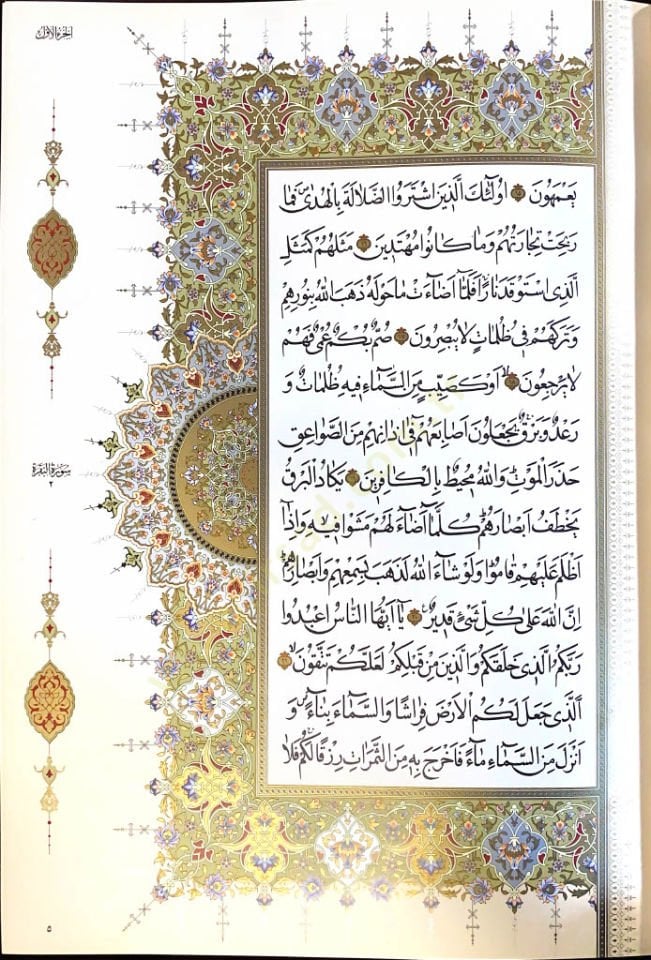 الجزء الأول
يَعْمَهُونَ ﴿١٥﴾ اُولٰٓئِكَ الَّذٖينَ اشْتَرَوُا الضَّلَالَةَ بِالْهُدٰىۖ فَمَا
رَبِحَتْ تِجَارَتُهُمْ وَمَا كَانُوا مُهْتَدٖينَ ﴿١٦﴾ مَثَلُهُمْ كَمَثَلِ
الَّذِى اسْتَوْقَدَ نَارًاۚ فَلَمَّٓا اَضَٓاءَتْ مَا حَوْلَهُ ذَهَبَ اللهُ بِنُورِهِمْ
وَتَرَكَهُمْ فٖى ظُلُمَاتٍ لَا يُبْصِرُونَ ﴿١٧﴾ صُمٌّ بُكْمٌ عُمْىٌ فَهُمْ
لَا يَرْجِعُونَۙ ﴿١٨﴾ اَوْ كَصَيِّبٍ مِنَ السَّمَٓاءِ فٖيهِ ظُلُمَاتٌ وَ
رَعْدٌ وَبَرْقٌۚ يَجْعَلُونَ اَصَابِعَهُمْ فٖٓى اٰذَانِهِمْ مِنَ الصَّوَاعِقِ
حَذَرَ الْمَوْتِؕ وَاللهُ مُحٖيطٌ بِالْكَافِرٖينَ ﴿١٩﴾ يَكَادُ الْبَرْقُ
يَخْطَفُ اَبْصَارَهُمْؕ كُلَّمَٓا اَضَٓاءَ لَهُمْ مَشَوْا فٖيهِۙ وَاِذَٓا
اَظْلَمَ عَلَيْهِمْ قَامُواؕ وَلَوْ شَٓاءَ اللهُ لَذَهَبَ بِسَمْعِهِمْ وَاَبْصَارِهِمْؕ
اِنَّ اللهَ عَلٰى كُلِّ شَىْءٍ قَدٖيرٌ ﴿٢٠﴾ يَٓا اَيُّهَا النَّاسُ اعْبُدُوا
رَبَّكُمُ الَّذٖى خَلَقَكُمْ وَالَّذٖينَ مِنْ قَبْلِكُمْ لَعَلَّكُمْ تَتَّقُونَۙ ﴿٢١﴾
اَلَّذٖى جَعَلَ لَكُمُ الْاَرْضَ فِرَاشًا وَالسَّمَٓاءَ بِنَٓاءًۖ وَ
اَنْزَلَ مِنَ السَّمَٓاءِ مَٓاءً فَاَخْرَجَ بِهٖ مِنَ الثَّمَرَاتِ رِزْقًا لَكُمْۚ فَلَا
سورة البقرة
٢
٥